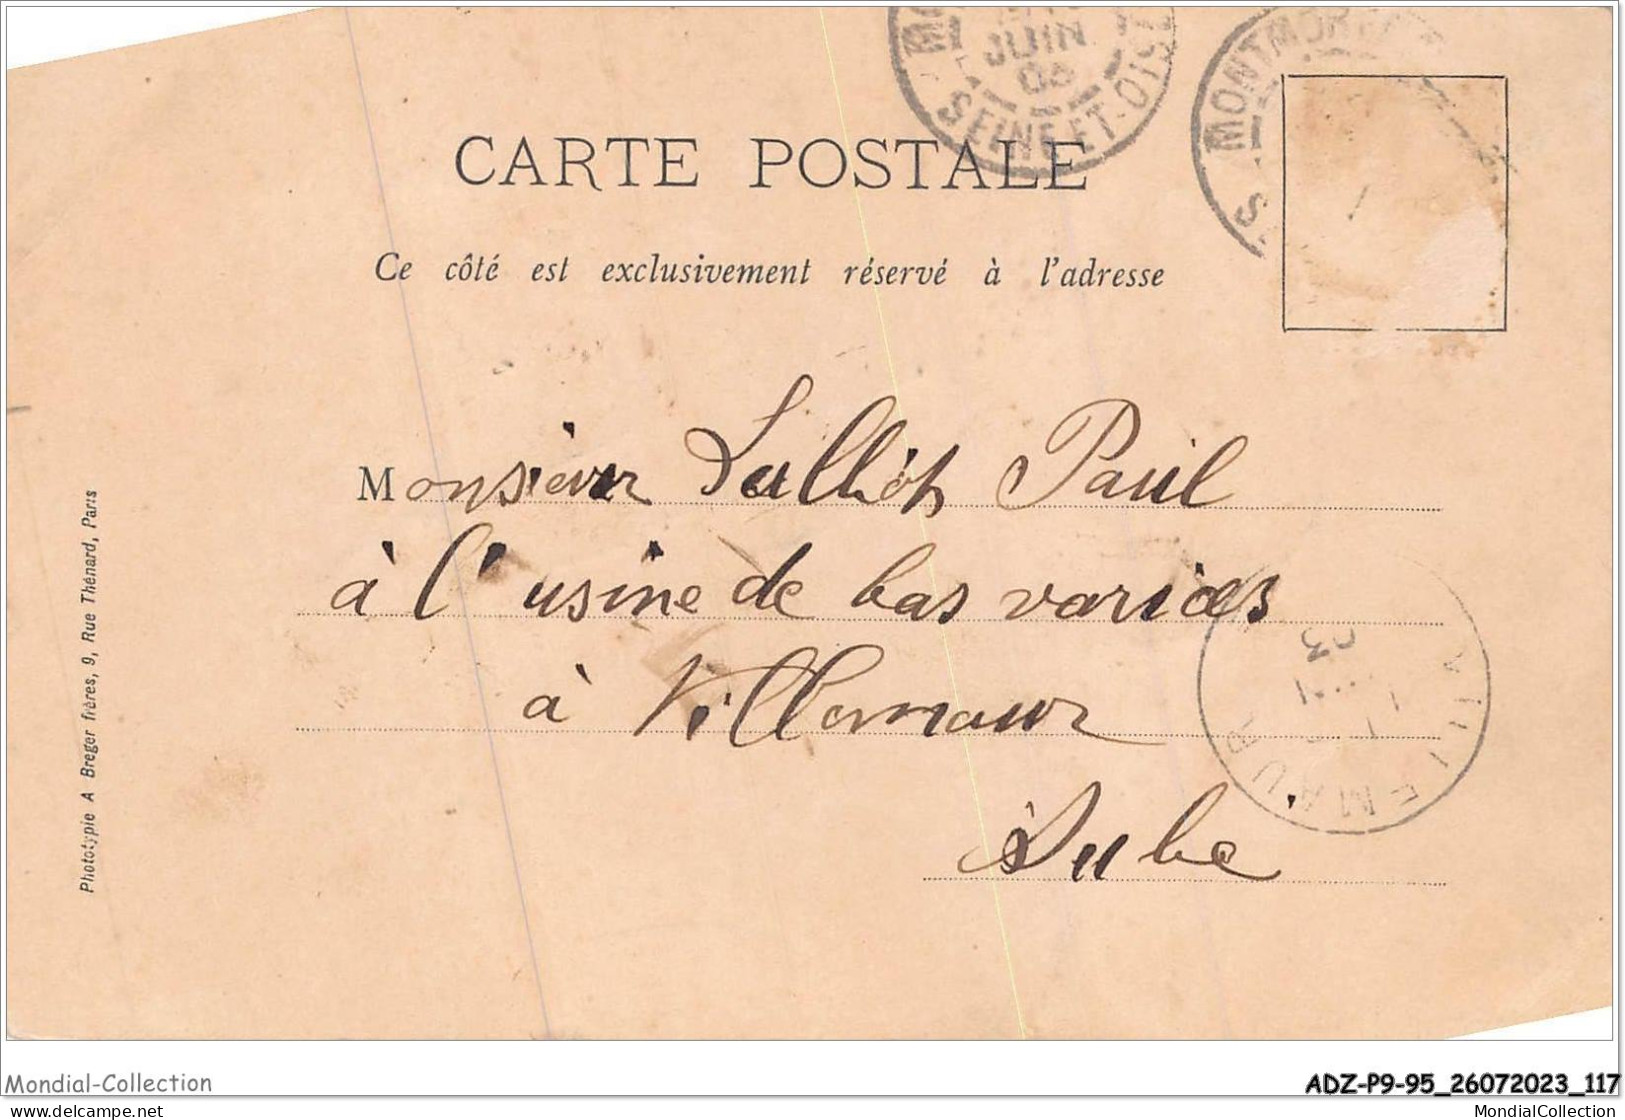 JUIN
03
SEINE-ET-OISE
MONTMOR
CARTE POSTALE
Ce côté est exclusivement réservé à l'adresse
Monsieur Paul
à l'usine de bas varices
à Villemaur
Aube
03
VILLEMAUR
Phototypie A Breger frères, 9, Rue Thénard, Paris
Mondial-Collection
ADZ-P9-95_26072023_117
delcampe.net
MondialCollection